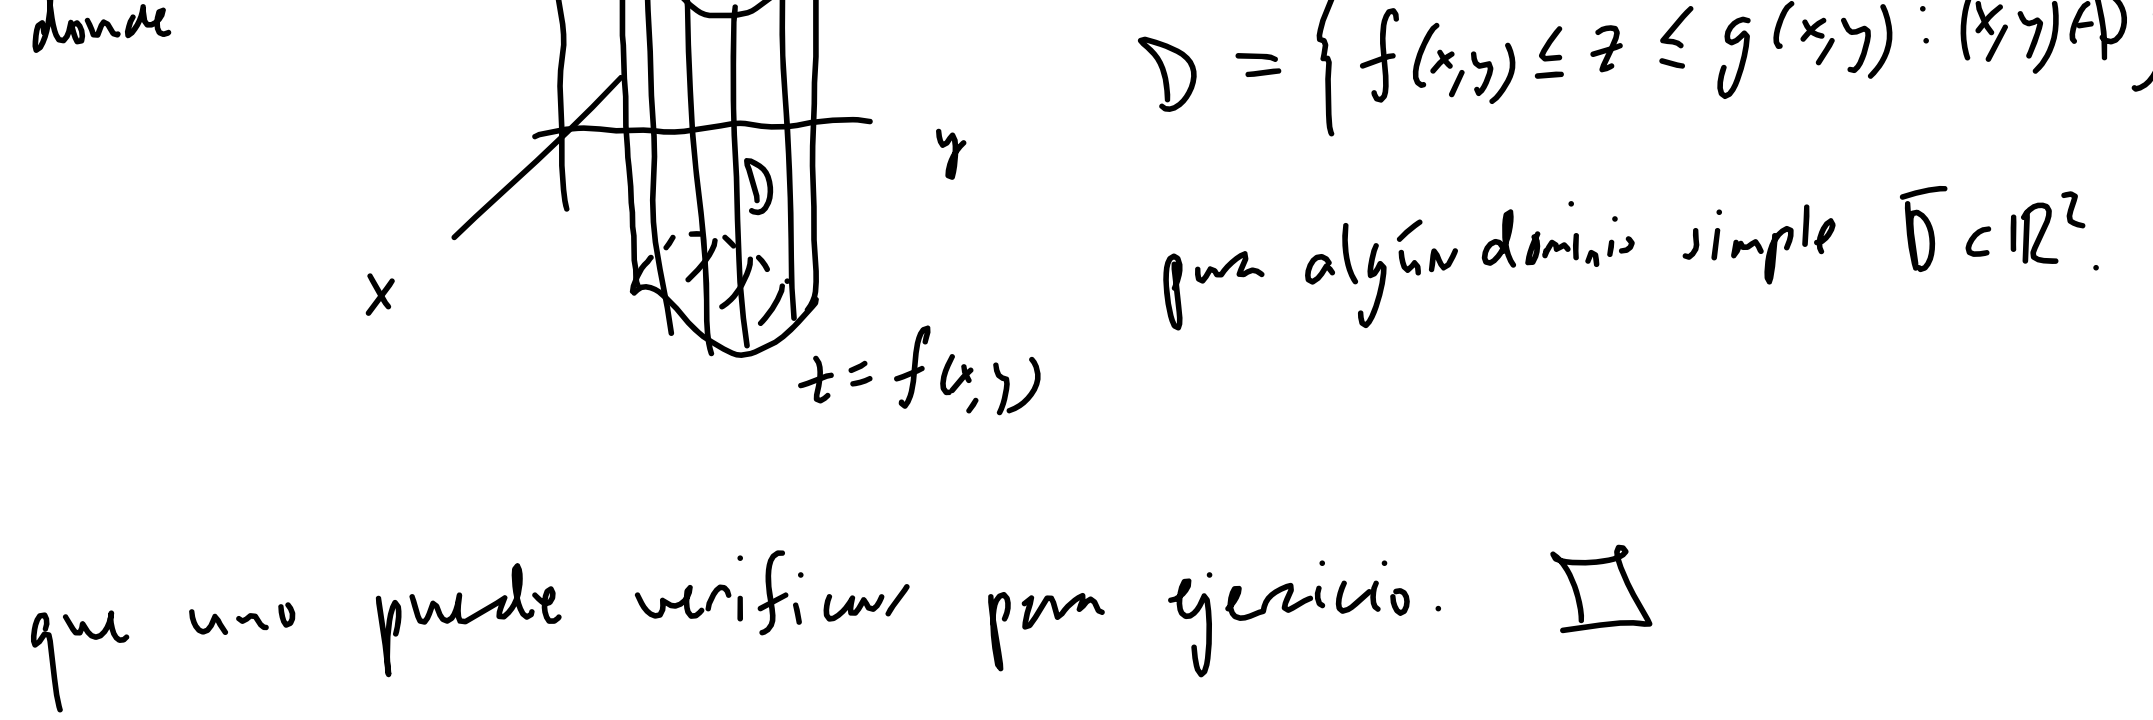 donde
D = { f(x,y) ≤ z ≤ g(x,y) : (x,y) ∈ D
y
D
para algún dominio simple D̅ ⊂ ℝ².
x
z = f(x,y)
que uno puede verificar para ejercicio. □